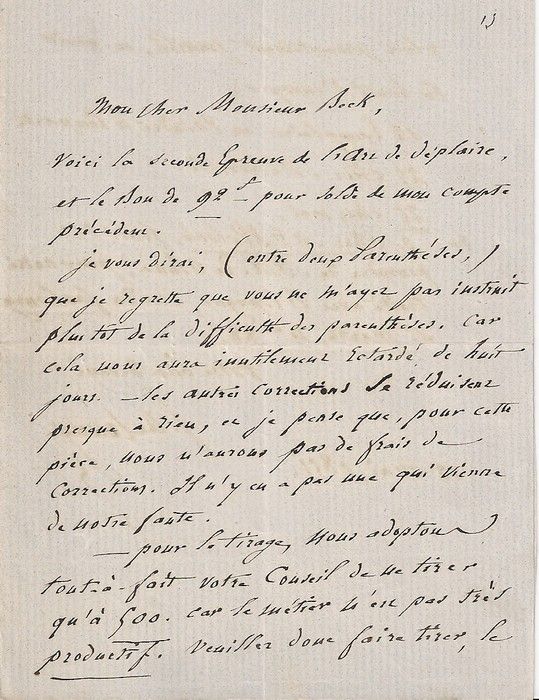 13
Mon cher Monsieur Beck,
Voici la seconde Epreuve de l'art de déplaire,
et le Bon de 92f – pour solde de mon compte
précédent.
je vous dirai, (entre deux Parenthèses,)
que je regrette que vous ne m'ayez pas instruit
plus tot de la difficulté des parenthèses. Car
cela nous aura inutilement retardé de huit
jours. – les autres corrections se réduisent
presque à rien, et je pense que, pour cette
pièce, nous n'aurons pas de frais de
Corrections. Il n'y en a pas une qui vienne
de notre faute.
– pour le tirage, nous adoptons
tout-à-fait votre Conseil de ne tirer
qu'à 500. car le métier n'est pas très
productif. Veuillez donc faire tirer, le